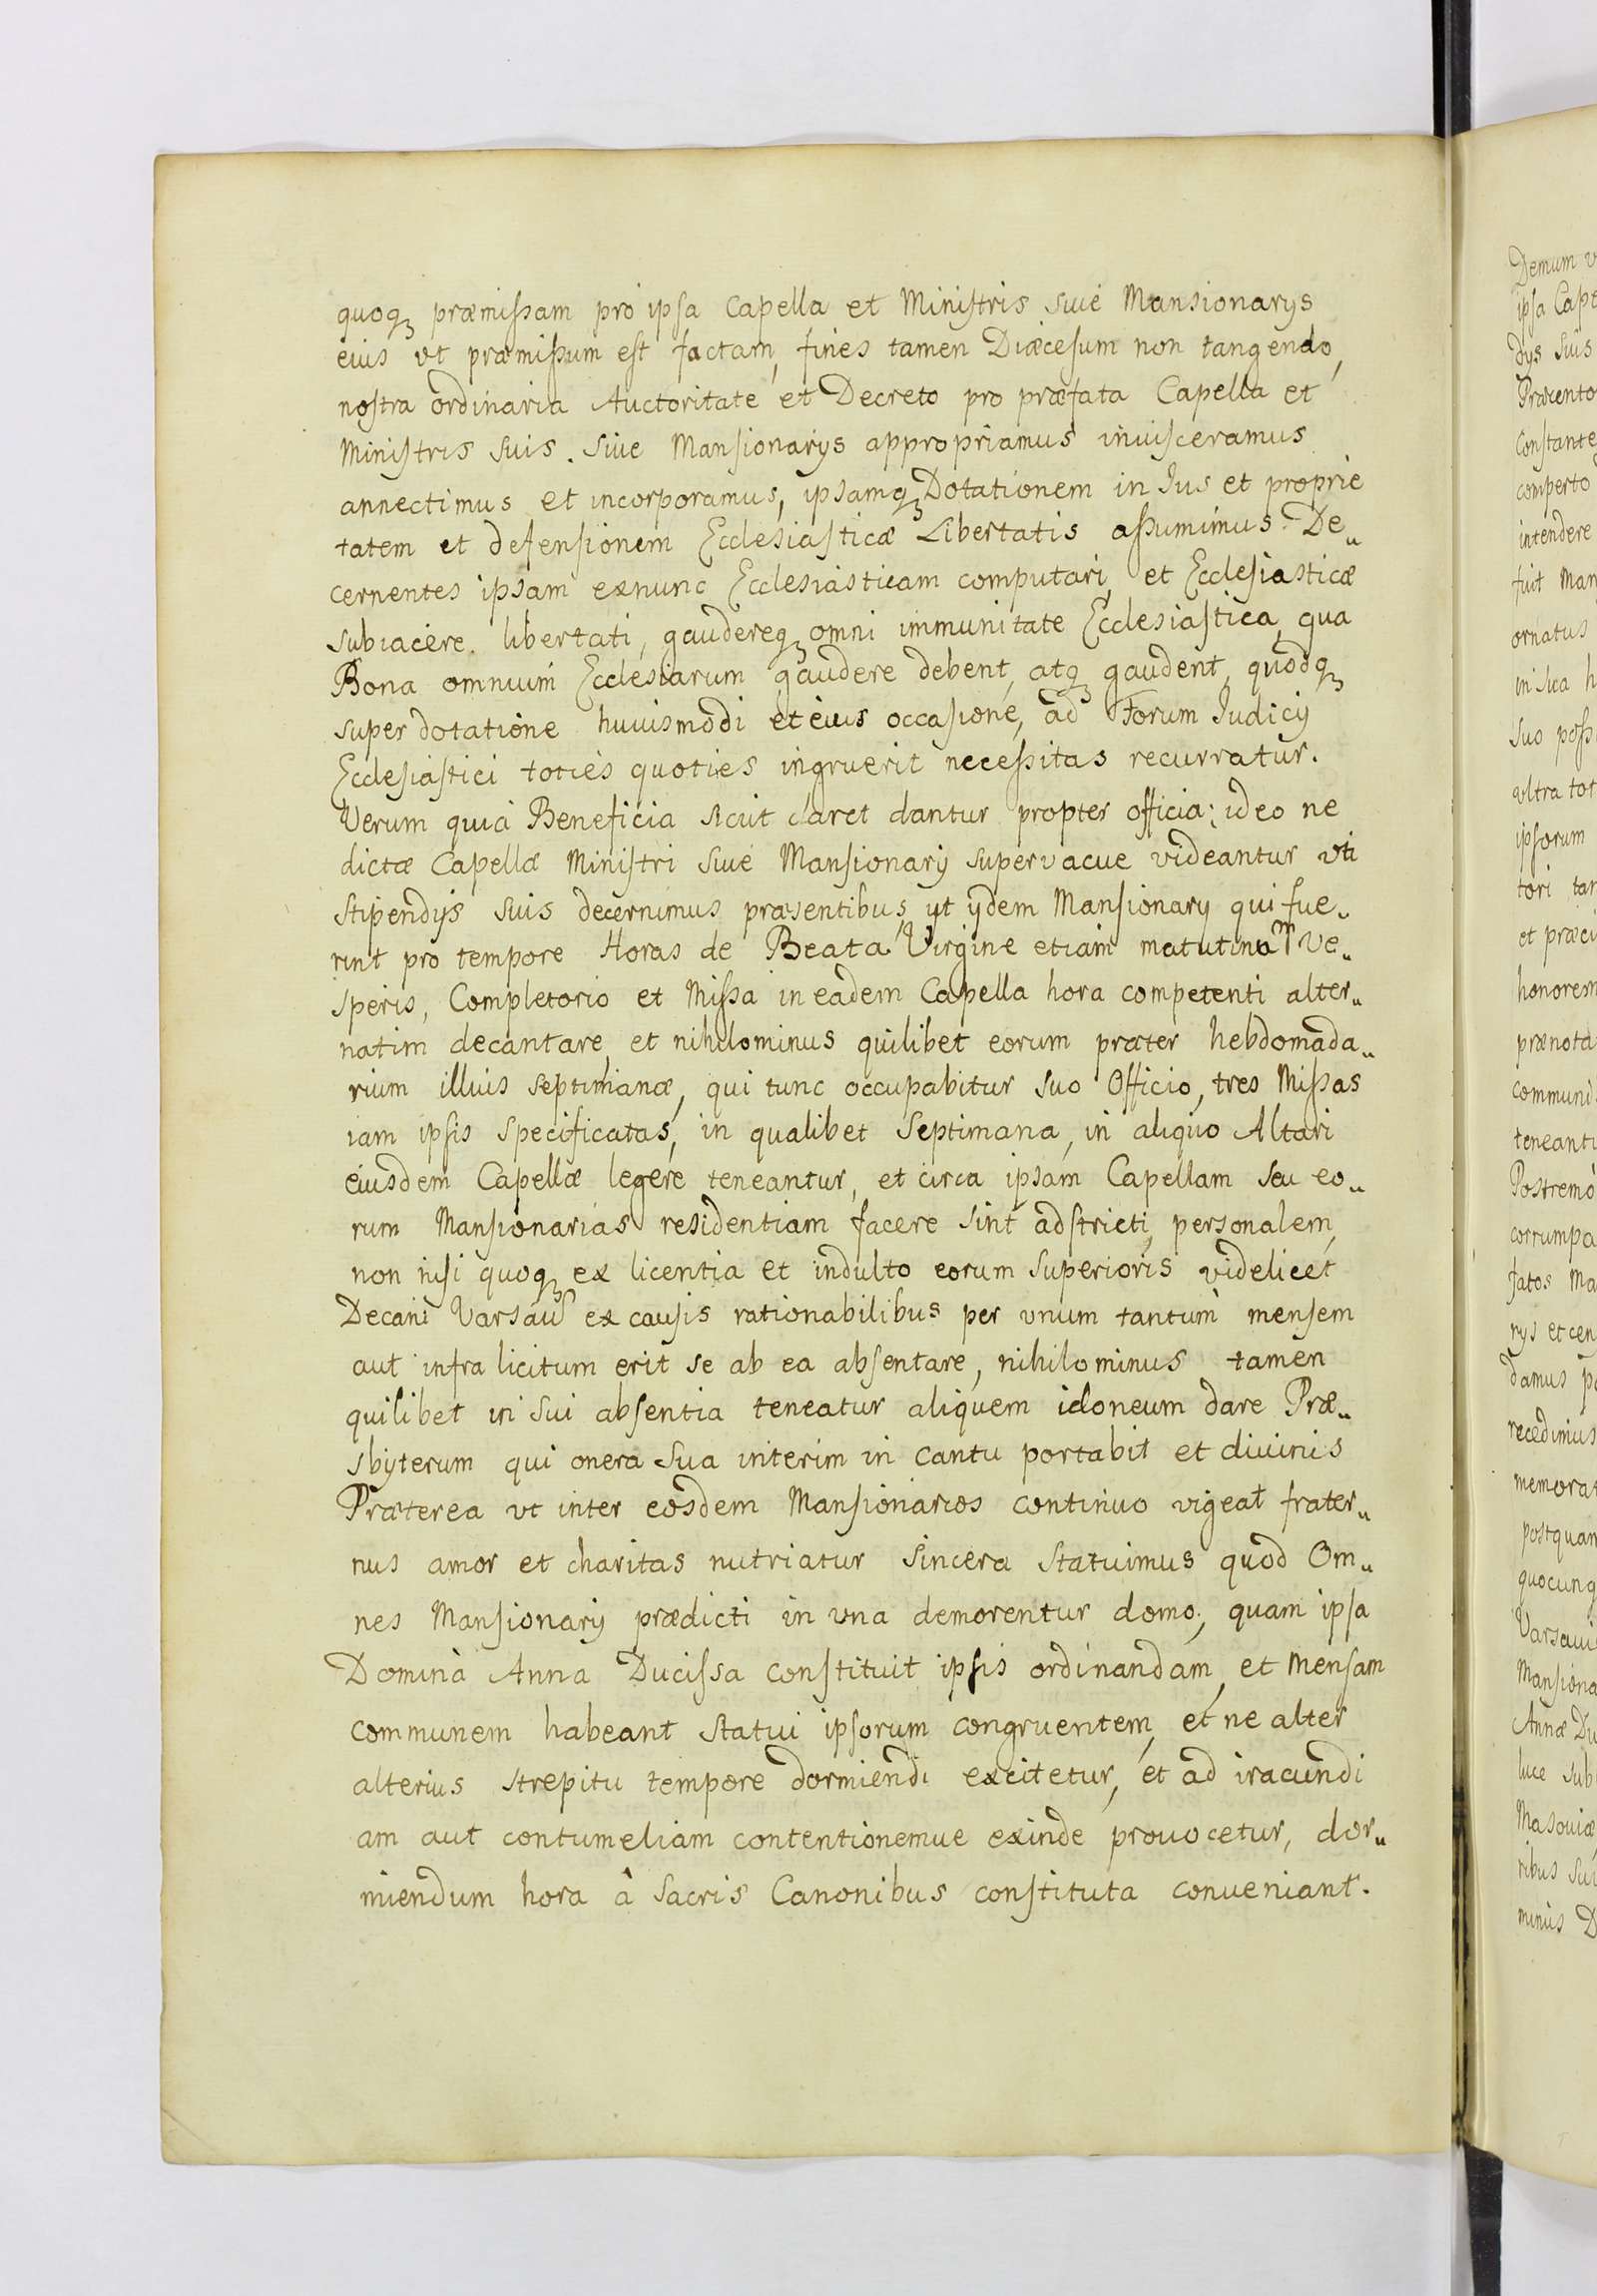 quoq₃ præmißam pro ipsa Capella et Ministris siue Mansionarys
eius vt præmißum est factam, fines tamen Diæcesum non tangendo,
nostra ordinaria Auctoritate et Decreto pro præfata Capella et
Ministris suis. Siue Mansionarys appropriamus inuisceramus
annectimus et incorporamus, ipsamq₃ Dotationem in Ius et proprie
tatem et defensionem Ecclesiasticæ Libertatis aßumimus. De„
cernentes ipsam exnunc Ecclesiasticam computari, et Ecclesiasticæ
subiacere. libertati, gaudereq₃ omni immunitate Ecclesiastica, qua
Bona omnium Ecclesiarum gaudere debent, atq₃ gaudent, quodq₃
super dotatione huiusmodi et eius occasione, ad Forum Iudicij
Ecclesiastici toties quoties ingruerit neceßitas recurratur.
Verum quia Beneficia sicut claret dantur propter officia; ideo ne
dictæ Capellæ Ministri siue Mansionarij supervacue videantur vti
stipendijs suis decernimus præsentibus, vt ijdem Mansionarij qui fue„
rint pro tempore Horas de Beata Virgine etiam matutina Ve„
speris, Completorio et Mißa in eadem Capella hora competenti alter„
natim decantare, et nihilominus quilibet eorum præter hebdomada„
rium illius septimanæ, qui tunc occupabitur suo Officio, tres Mißas
iam ipsis specificatas, in qualibet Septimana, in aliquo Altari
eiusdem Capellæ legere teneantur, et circa ipsam Capellam seu eo„
rum Mansionarias residentiam facere sint adstricti, personalem,
non nisi quoq₃ ex licentia et indulto eorum superioris videlicet
Decani Varsau ex causis rationabilibus per vnum tantum mensem
aut infra licitum erit se ab ea absentare, nihilominus tamen
quilibet in sui absentia teneatur aliquem idoneum dare Præ„
sbyterum qui onera sua interim in cantu portabit et diuinis
Præterea vt inter eosdem Mansionarios continuo vigeat frater„
nus amor et charitas nutriatur sincera statuimus quod Om„
nes Mansionarij prædicti in vna demorentur domo, quam ipsa
Domina Anna Ducissa constituit ipsis ordinandam, et Mensam
communem habeant statui ipsorum congruentem, et ne alter
alterius strepitu tempore dormiendi excitetur, et ad iracundi
am aut contumeliam contentionemue exinde prouocetur, dor„
miendum hora à Sacris Canonibus constituta conueniant.
Demum
ipsa
suis
comperto
intendere
ornatus
ipsorum
teneant
memora
Annæ
luce
Masouiæ